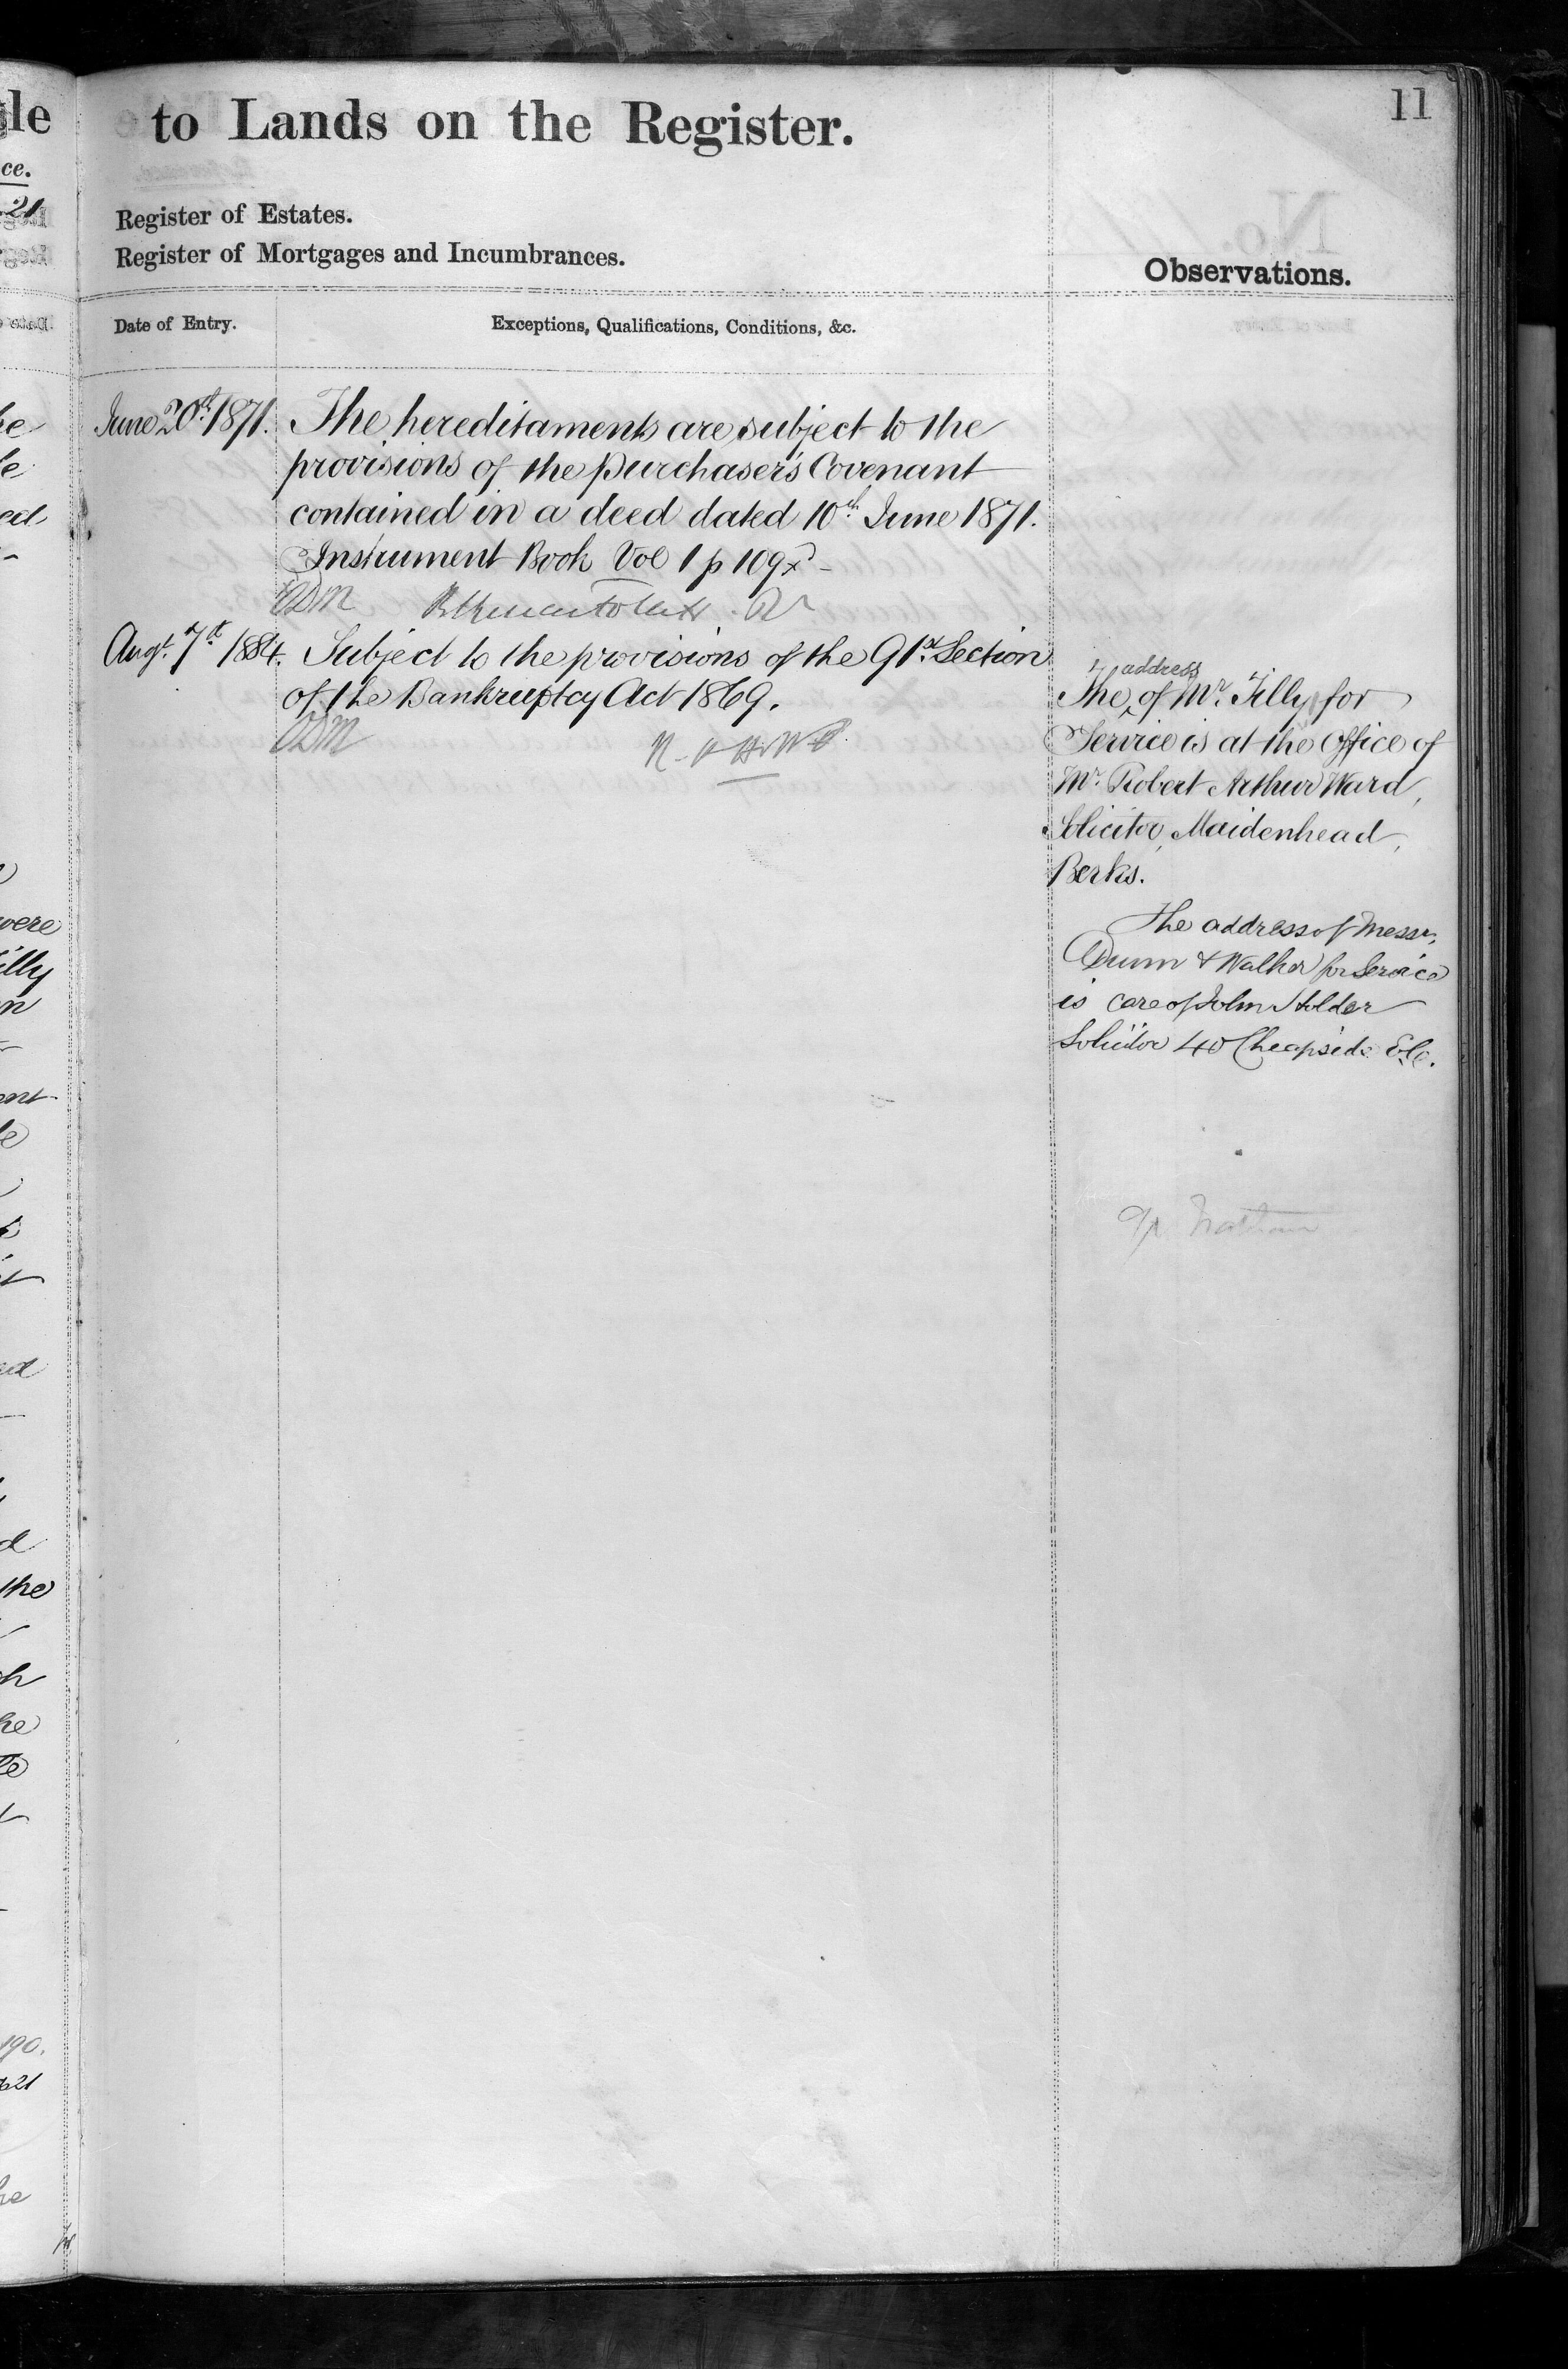 11
to Lands on the Register.
Register of Estates.
Register of Mortgages and Incumbrances.
Observations.
Date of Entry.
Exceptions, Qualifications, Conditions, &c.
June 20th 1871. The hereditaments are subject to the
provisions of the purchaser's Covenant
contained in a deed dated 10th June 1871.
Instrument Book Vol 1 p 109
Augt. 7th 1884. Subject to the provisions of the 91st Section
of the Bankruptcy Act 1869.
address
The of Mr. Tilly for
Service is at the Office of
Mr. Robert Arthur Ward,
Solicitor, Maidenhead,
Berks.
The address of Messrs.
Dunn & Walker for Service
is care of John Holder
Solicitor 40 Cheapside E.C.